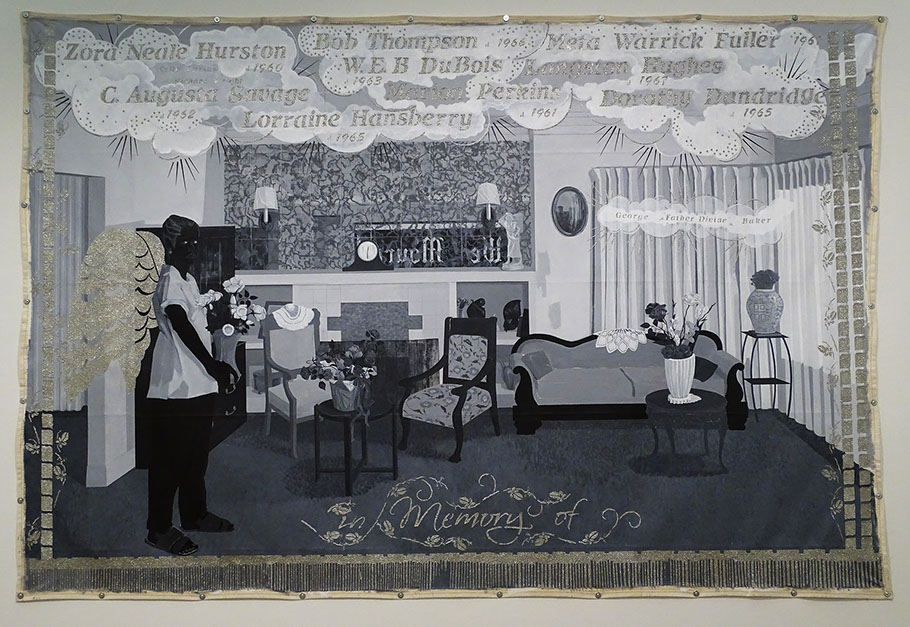 Zora Neale Hurston
d. 1960
Bob Thompson d. 1966
Meta Warrick Fuller
W.E.B DuBois
1963
Langston Hughes
1967
C. Augusta Savage
d. 1962
Marion Perkins
d. 1961
Dorothy Dandridge
d. 1965
Lorraine Hansberry
d. 1965
George "Father Divine" Baker
We Mourn
In Memory of